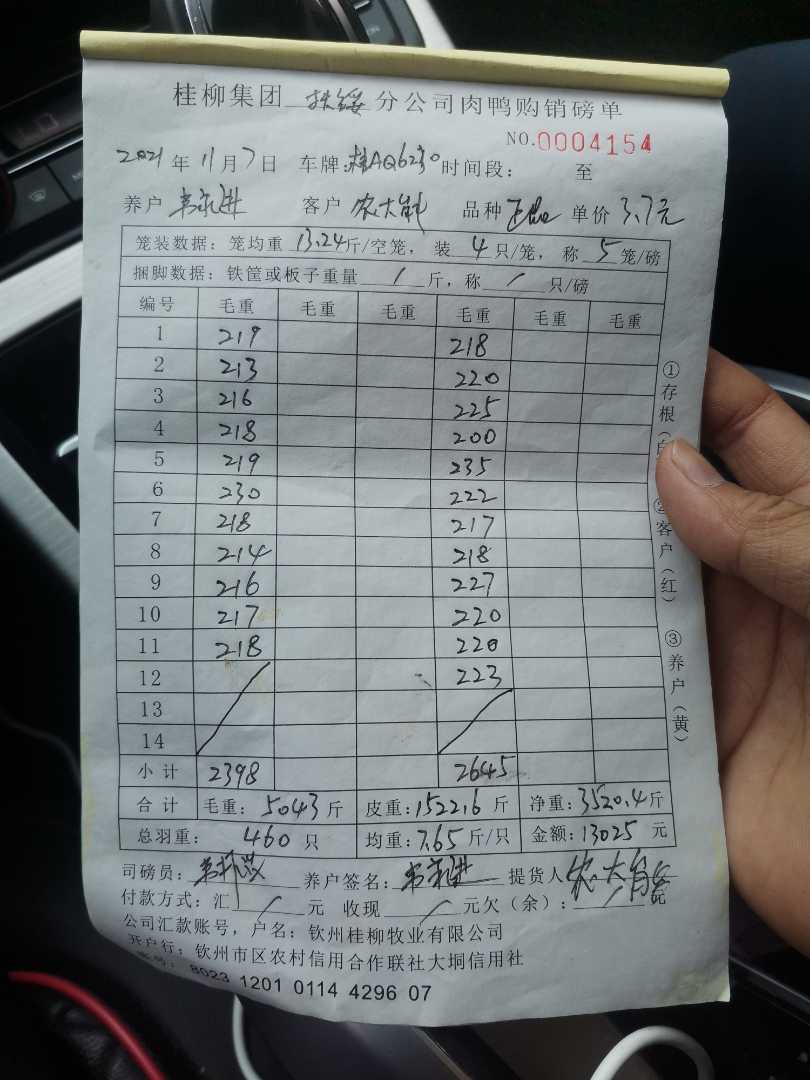 桂柳集团 扶绥 分公司肉鸭购销磅单
NO.0004154
2021 年 11 月 7 日 车牌:桂AQ6230 时间段: 至
养户 客户 农大 品种 正品 单价 3.7元
笼装数据: 笼均重 13.24斤/空笼, 装 4 只/笼, 称 5 笼/磅
捆脚数据: 铁筐或板子重量 / 斤, 称 / 只/磅
编号 毛重 毛重 毛重 毛重 毛重 毛重
1 219 218
2 213 220
3 216 225
4 218 200
5 219 235
6 230 222
7 218 217
8 214 218
9 216 227
10 217 220
11 218 220
12 223
13
14
小计 2398 2645
合计 毛重: 5043 斤 皮重: 1522.6 斤 净重: 3520.4 斤
总羽重: 460 只 均重: 7.65 斤/只 金额: 13025 元
司磅员: 养户签名: 提货人 农大
付款方式: 汇 / 元 收现 / 元欠(余): / 元
公司汇款账号, 户名: 钦州桂柳牧业有限公司
开户行: 钦州市区农村信用合作联社大垌信用社
账号: 8023 1201 0114 4296 07
①存根(白
②客户(红)
③养户(黄)